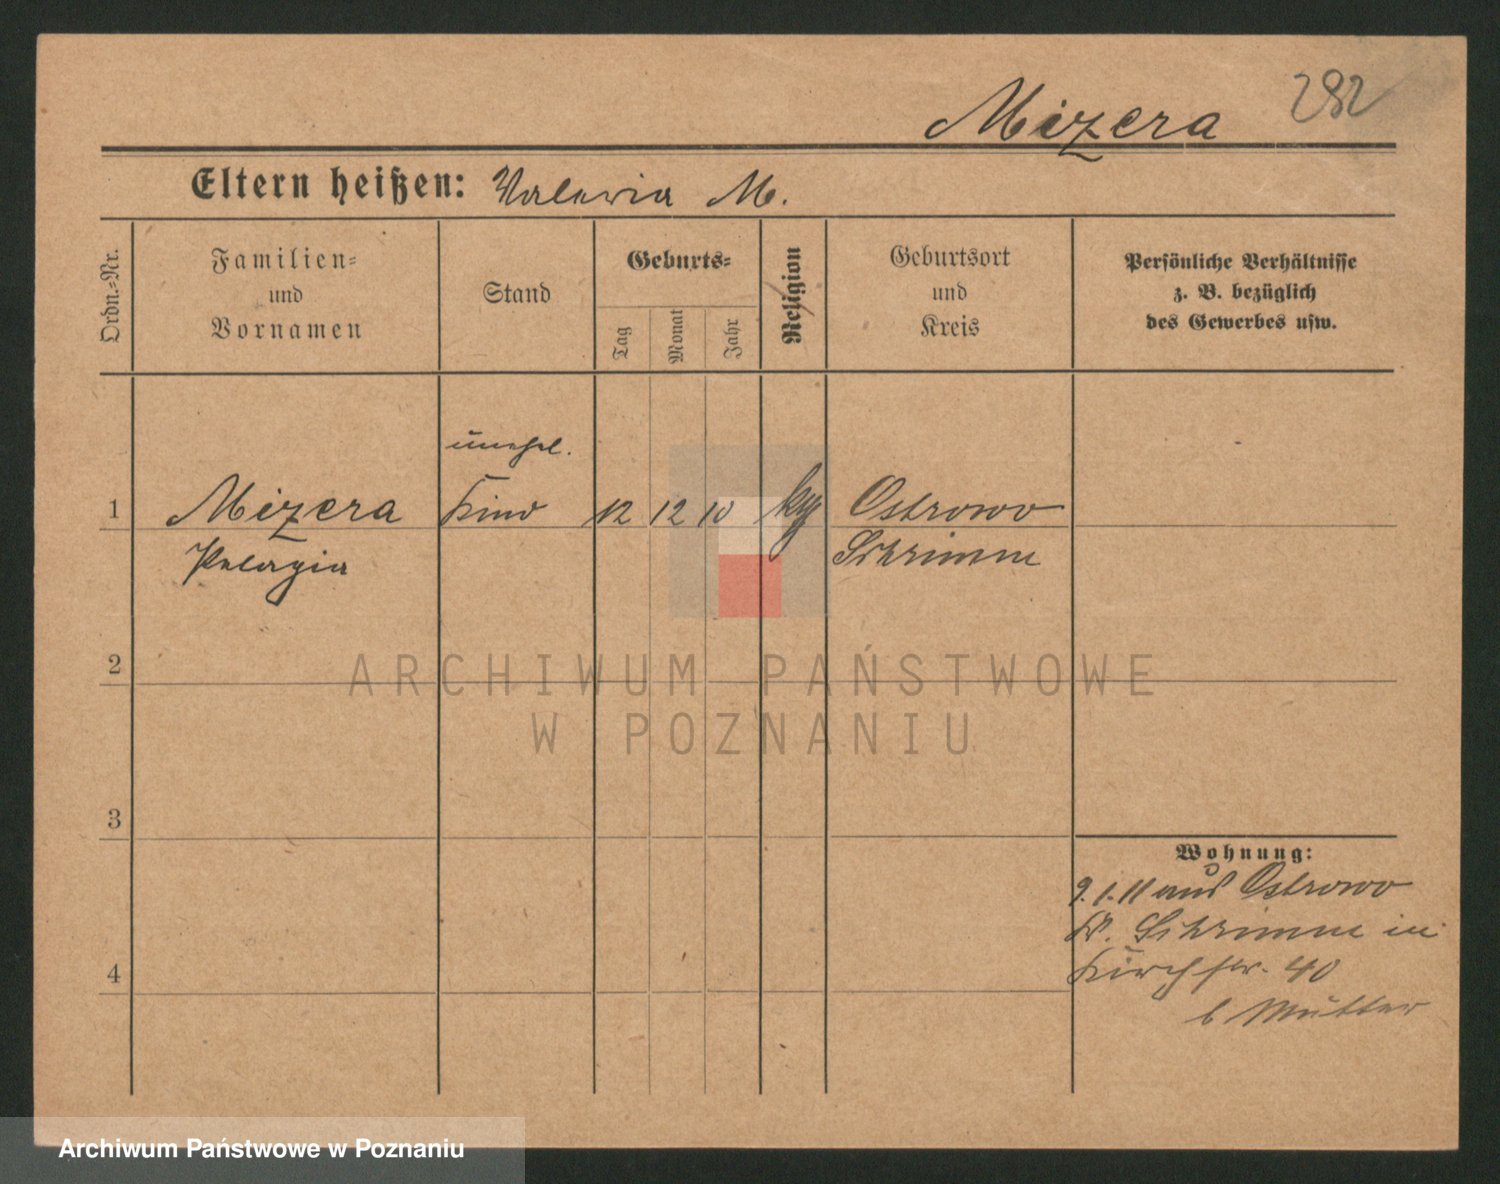 282
Mizera
Eltern heißen: Valeria M.
Ordn.-Nr.
Familien-
und
Vornamen
Stand
Geburts-
Tag
Monat
Jahr
Religion
Geburtsort
und
Kreis
Persönliche Verhältnisse
z. B. bezüglich
des Gewerbes usw.
unehel.
1 Mizera Kind 12 12 10 kg Ostrowo
Pelagia Schrimm
2
3
4
Wohnung:
9.1.11 aus Ostrowo
Kr. Schrimm in
Kirchstr. 40
b Mutter
ARCHIWUM PAŃSTWOWE
W POZNANIU
Archiwum Państwowe w Poznaniu